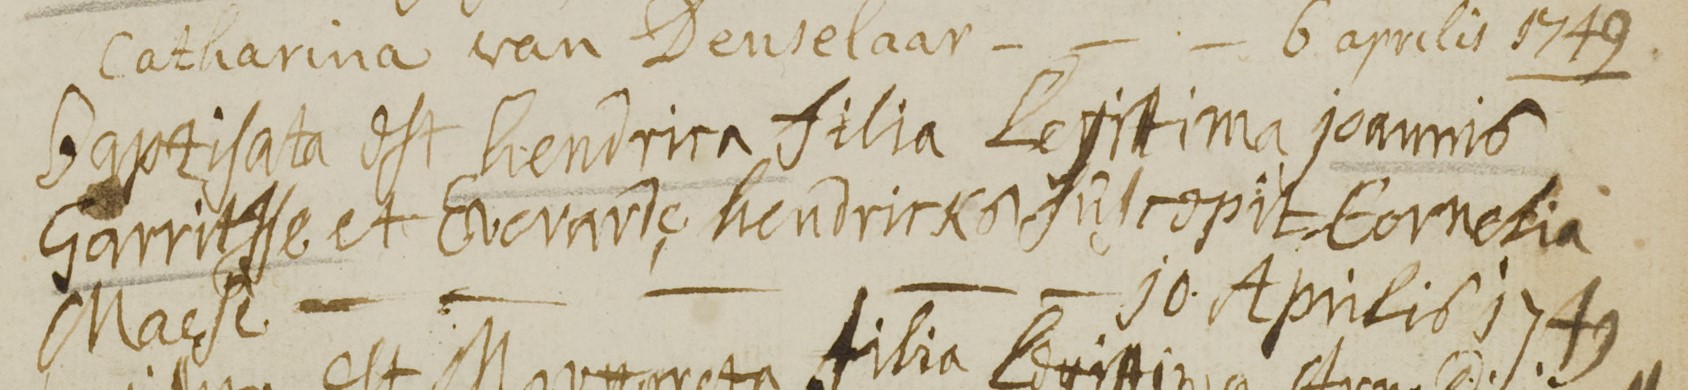 Catharina van Denselaar - - - 6 aprilis 1749
baptisata est hendrica filia Legittima joannis
Garritsse et Everardę hendricks suscepit Cornelia
Maesse — — — — — 10. Aprilis 1749
est Margareta filia Legittima